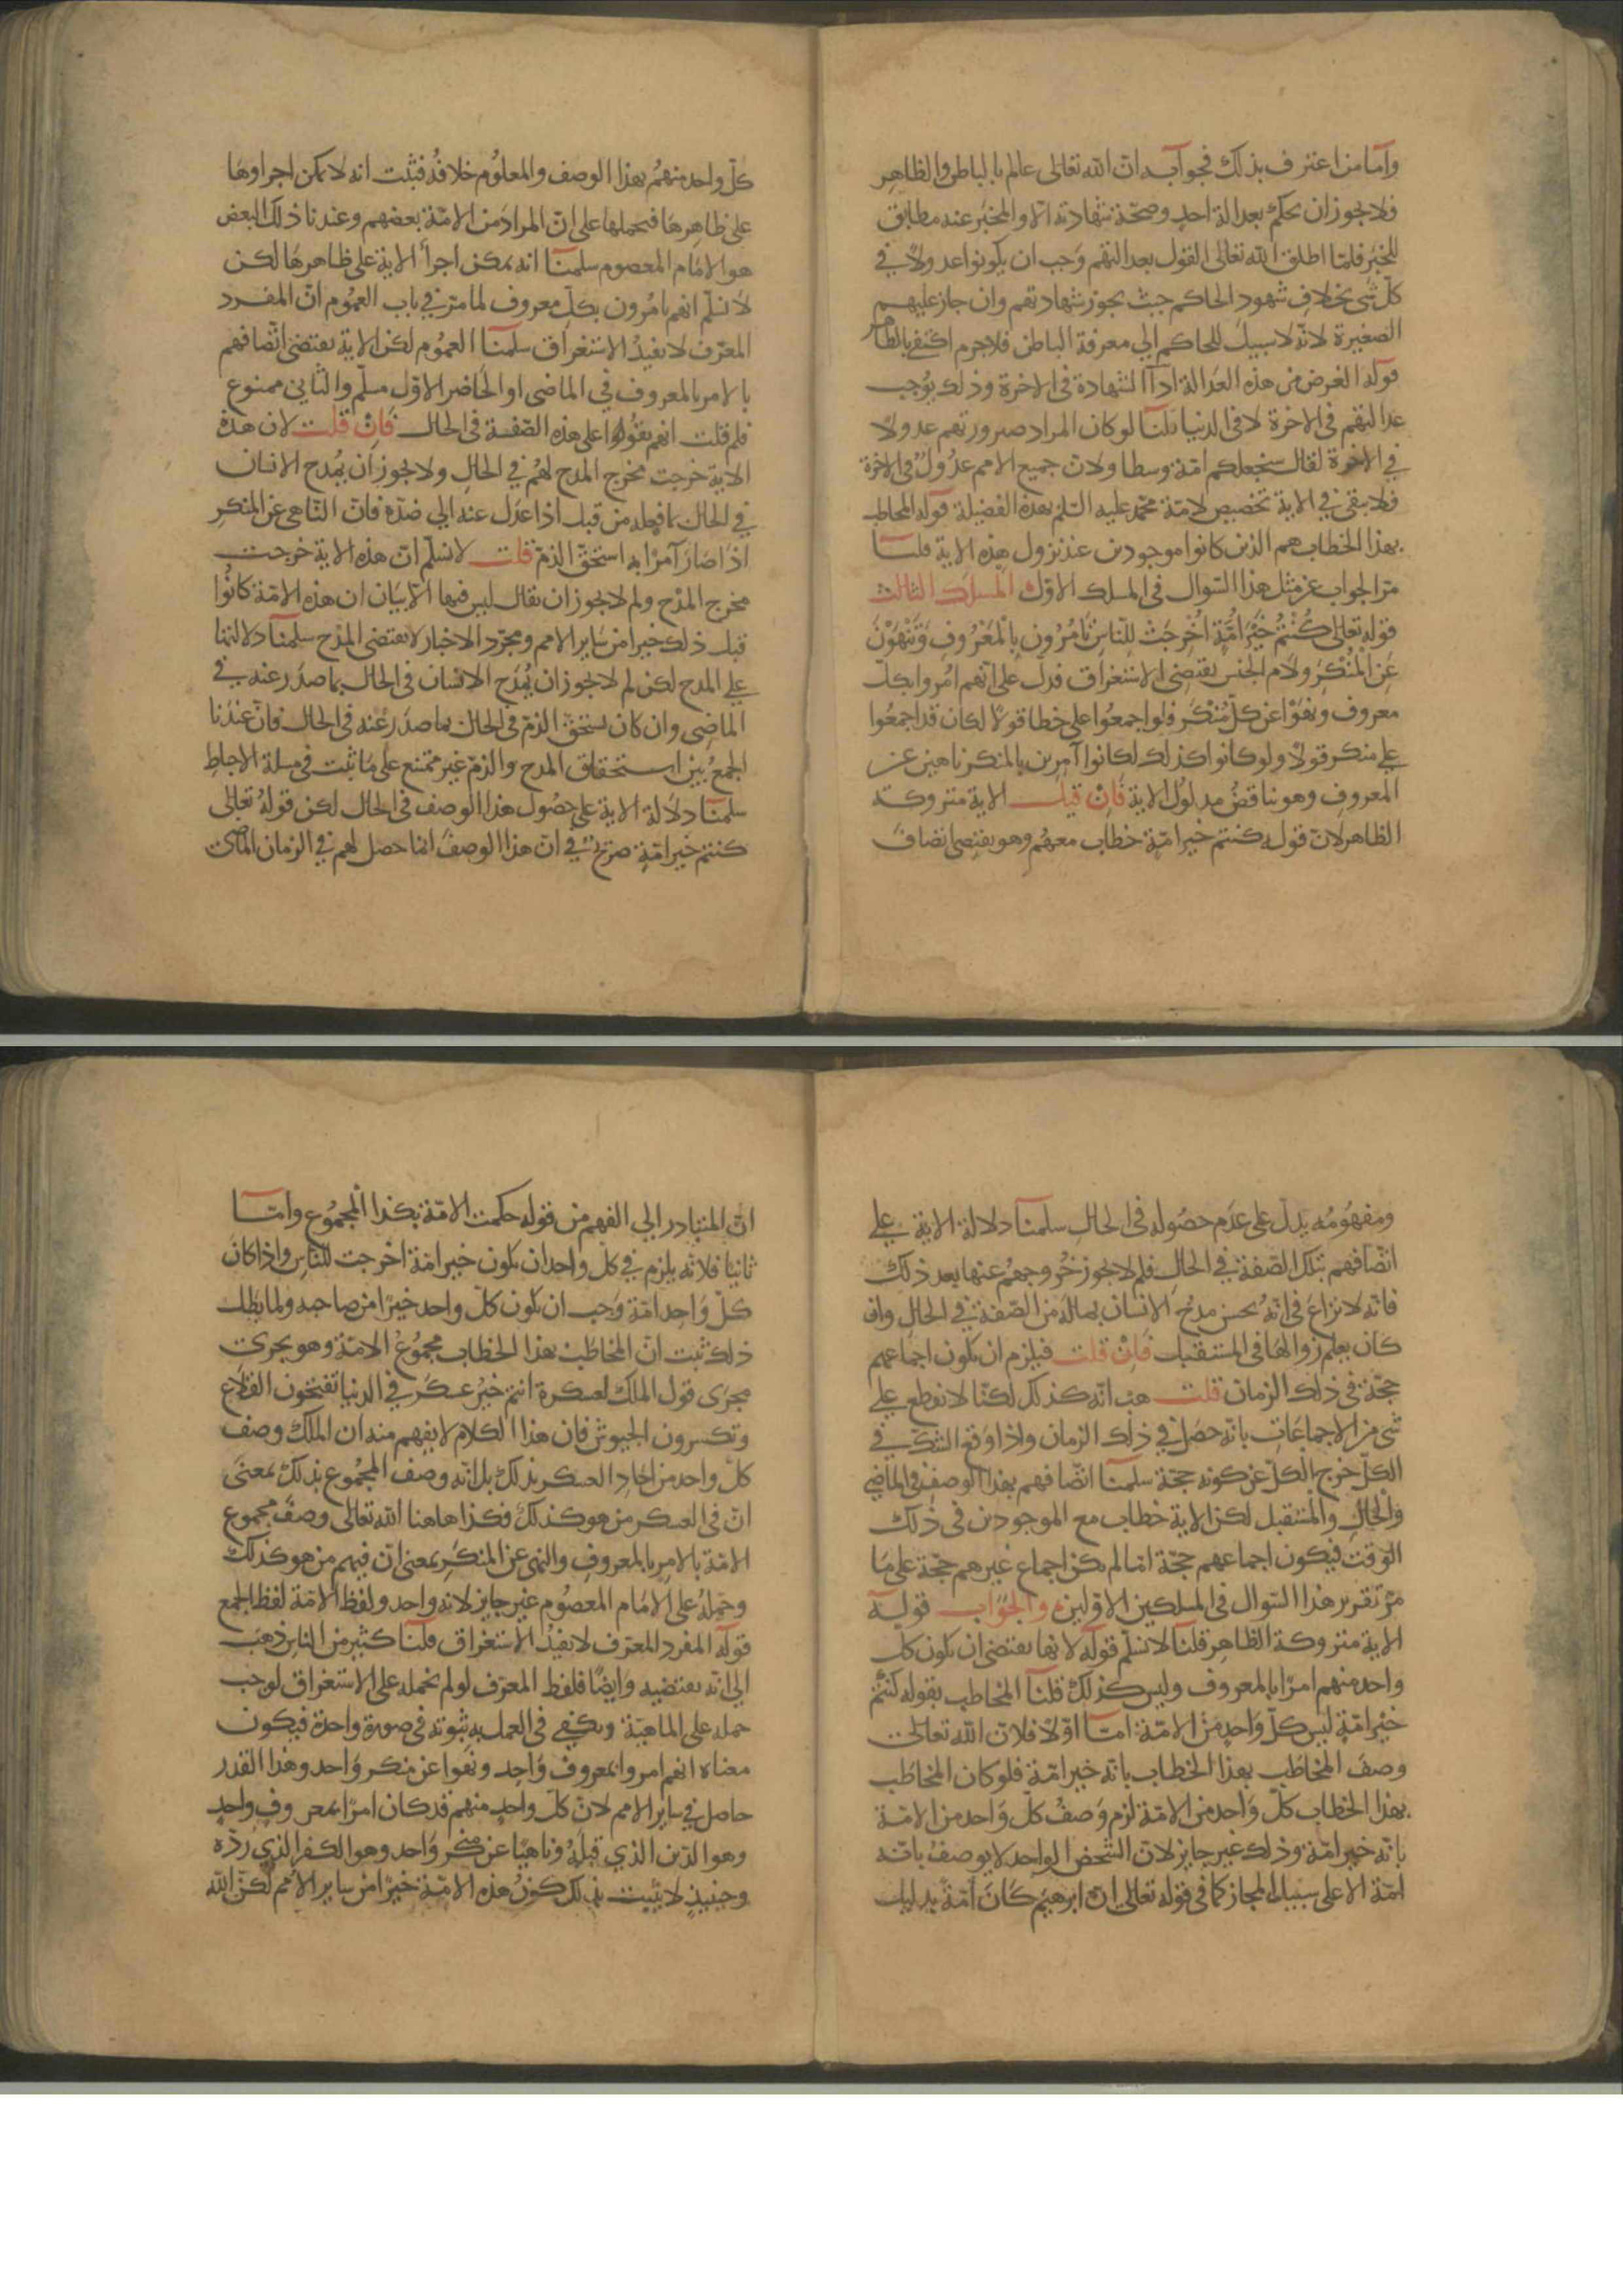 وأما من اعترف بذلك فجوابه ان الله تعالى عالم بالباطن والظاهر
فلا يجوز ان يحكم بعدالة احد وصحة شهادته الا والمخبر عنه مطابق
للخبر فلما اطلق الله تعالى القول بعدالتهم وجب ان يكونوا عدولا في
كل شى بخلاف شهود الحاكم حيث يجوز شهادتهم وان جاز عليهم
الصغيرة لانه لا سبيل للحاكم الي معرفة الباطن فلا جرم اكتفى بالظاهر
قوله الغرض من هذه العدالة ادآ الشهادة فى الاخرة وذلك يوجب
عدالتهم فى الاخرة لا فى الدنيا قلنا لو كان المراد صيرورتهم عدولا
في الاخرة لقال سنجعلكم امة وسطا ولان جميع الامم عدول فى الاخرة
فلا يبقى في الاية تخصيص لامة محمد عليه السلم بهذه الفضيلة قوله المخاطب
بهذا الخطاب هم الذين كانوا موجودين عند نزول هذه الاية قلنا
مر الجواب عن مثل هذا السوال فى المسلك الاول المسلك الثالث
قوله تعالى كُنْتُمْ خَيْرَ اُمَّةٍ اُخْرِجَتْ لِلنَّاسِ تَامُرُونَ بِالْمَعْرُوفِ وَتَنْهَوْنَ
عَنِ الْمُنْكَرِ ولام الجنس يقتضى الاستغراق فدل على انهم امروا بكل
معروف ونهوا عن كل منكر فلو اجمعوا على خطا قولا لكان قد اجمعوا
علي منكر قولا ولو كانوا كذلك لكانوا آمرين بالمنكر ناهين عن
المعروف وهو يناقض مدلول الاية فان قيل الاية متروكة
الظاهر لان قوله كنتم خير امة خطاب معهم وهو يقتضى اتصاف
كل واحد منهم بهذا الوصف والمعلوم خلافه فثبت انه لا يمكن اجراوها
على ظاهرها فيحملها على ان المراد من الامة بعضهم وعندنا ذلك البعض
هو الامام المعصوم سلمنا انه يمكن اجرأ الاية على ظاهرها لكن
لا نسلم انهم يامرون بكل معروف لما مر في باب العموم ان المفرد
المعرف لا يفيد الاستغراق سلمنا العموم لكن الاية يقتضى اتصافهم
بالامر بالمعروف في الماضى او الحاضر الاول مسلم والثاني ممنوع
فلم قلت انهم بقوا على هذه الصفة فى الحال فان قلت لان هذه
الاية خرجت مخرج المدح لهم في الحال ولا يجوز ان يمدح الانسان
في الحال بما فعله من قبل اذا عدل عنه الي ضده فان الناهى عن المنكر
اذا صار آمرا به استحق الذم قلت لا نسلم ان هذه الاية خرجت
مخرج المدح ولم لا يجوز ان يقال ليس فيها الا بيان ان هذه الامة كانوا
قبل ذلك خيرا من ساير الامم ومجرد الاخبار لا يقتضى المدح سلمنا دلالتها
علي المدح لكن لم لا يجوز ان يمدح الانسان فى الحال بما صدر عنه في
الماضى وان كان يستحق الذم فى الحال بما صدر عنه فى الحال فان عندنا
الجمع بين استحقاق المدح والذم غير ممتنع على ما ثبت فى مسلة الاحباط
سلمنا دلالة الاية على حصول هذا الوصف فى الحال لكن قوله تعالى
كنتم خير امة صريح في ان هذا الوصف انما حصل لهم في الزمان الماضى
ومفهومه يدل على عدم حصوله فى الحال سلمنا دلالة الاية علي
اتصافهم بتلك الصفة في الحال فلم لا يجوز خروجهم عنها بعد ذلك
فانه لا نزاع فى انه يحسن مدح الانسان بماله من الصفة في الحال وان
كان يعلم زوالها فى المستقبل فان قلت فيلزم ان يكون اجماعهم
حجة فى ذلك الزمان قلت هب انه كذلك لكنا لا نقطع علي
شى من الاجماعات بانه حصل في ذلك الزمان واذا وقع الشك في
الكل خرج الكل عن كونه حجة سلمنا اتصافهم بهذا الوصف فى الماضى
والحال والمستقبل لكن الاية خطاب مع الموجودين فى ذلك
الوقت فيكون اجماعهم حجة اما لم يكن اجماع غيرهم حجة على ما
مر تقرير هذا السوال فى المسلكين الاولين والجواب قوله
الاية متروكة الظاهر قلنا لا نسلم قوله لانها يقتضى ان يكون كل
واحد منهم امرا بالمعروف وليس كذلك قلنا المخاطب بقوله كنتم
خير امة ليس كل واحد من الامة اما اولا فلان الله تعالى
وصف المخاطب بهذا الخطاب بانه خير امة فلو كان المخاطب
بهذا الخطاب كل واحد من الامة لزم وصف كل واحد من الامة
بانه خير امة وذلك غير جايز لان الشخص الواحد لا يوصف بانه
امة الا على سبيل المجاز كما فى قوله تعالى ان ابرهيم كان امة بدليل
ان المتبادر الي الفهم من قوله حكمت الامة بكذا المجموع واما
ثانيا فلانه يلزم في كل واحد ان يكون خير امة اخرجت للناس واذا كان
كل واحد امة وجب ان يكون كل واحد خيرا من صاحبه ولما بطل
ذلك ثبت ان المخاطب بهذا الخطاب مجموع الامة وهو يجرى
مجرى قول الملك لعسكره انتم خير عسكر في الدنيا تفتحون القلاع
وتكسرون الجيوش فان هذا الكلام لا يفهم منه ان الملك وصف
كل واحد من احاد العسكر بذلك بل انه وصف المجموع بذلك بمعنى
ان فى العسكر من هو كذلك فكذا هاهنا الله تعالى وصف مجموع
الامة بالامر بالمعروف والنهى عن المنكر بمعنى ان فيهم من هو كذلك
وحمله على الامام المعصوم غير جايز لانه واحد ولفظ الامة لفظ الجمع
قوله المفرد المعرف لا يفيد الاستغراق قلنا كثير من الناس ذهب
الي انه يقتضيه وايضا فلفظ المعرف لو لم نحمله على الاستغراق لوجب
حمله على الماهية ويكفي فى العمل به ثبوته فى صورة واحدة فيكون
معناه انهم امروا بمعروف واحد ونهوا عن منكر واحد وهذا القدر
حاصل في ساير الامم لان كل واحد منهم قد كان امرا بمعروف واحد
وهو الدين الذي قبله وناهيا عن منكر واحد وهو الكفر الذي رده
وحينيذ لا يثبت بذلك كون هذه الامة خيرا من ساير الامم لكن الله